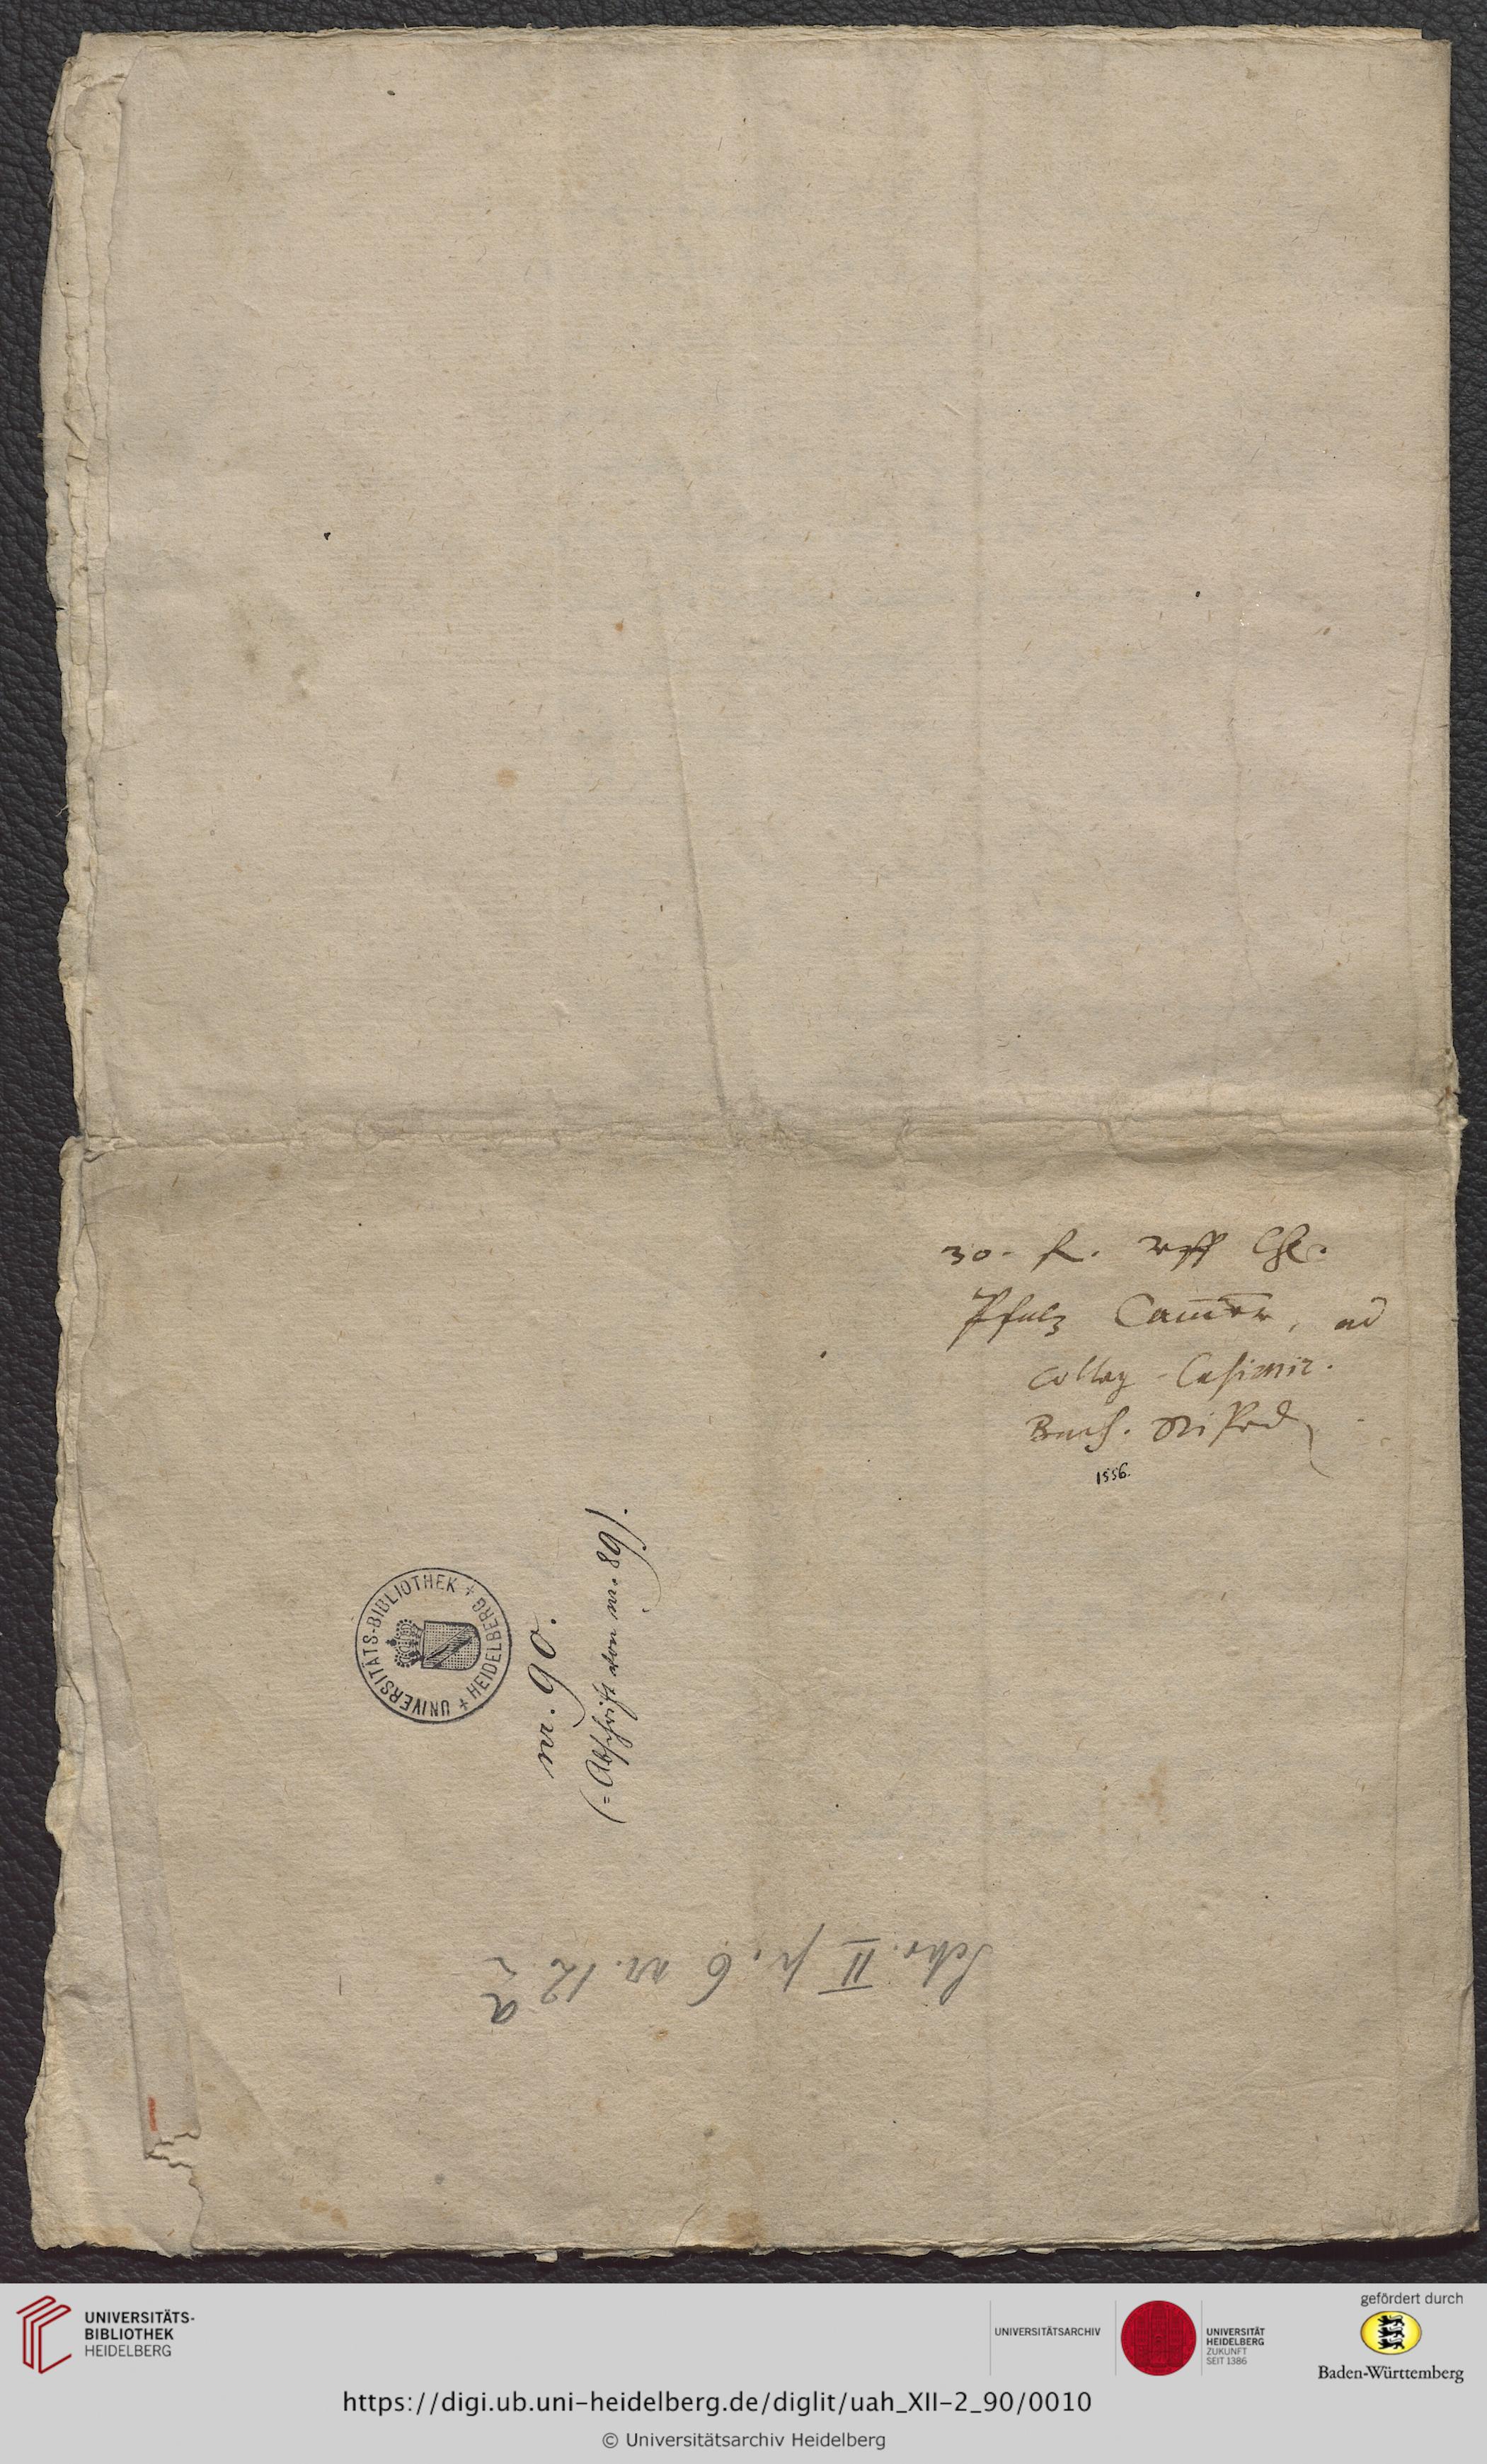 30. fl. uff Chf.
Pfalz Camer, ad
Colleg. Casimir.
Buch.
1556.
UNIVERSITÄTS-BIBLIOTHEK + HEIDELBERG +
nr. 90.
(= Abschrift von nr. 89).
Schr. II p. 6 nr. 12 a
UNIVERSITÄTS-
BIBLIOTHEK
HEIDELBERG
UNIVERSITÄTSARCHIV
UNIVERSITÄT
HEIDELBERG
ZUKUNFT
SEIT 1386
gefördert durch
Baden-Württemberg
https://digi.ub.uni-heidelberg.de/diglit/uah_XII-2_90/0010
© Universitätsarchiv Heidelberg